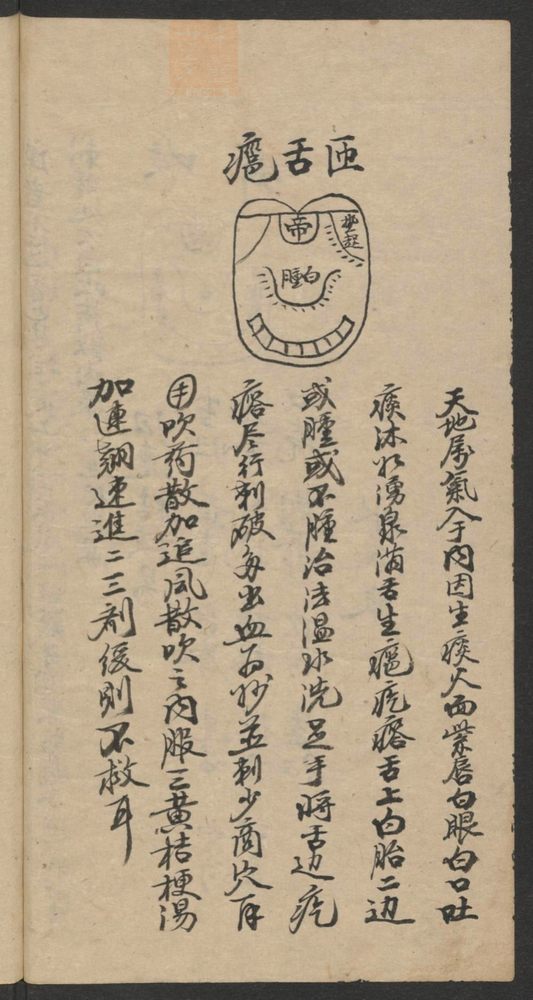 匝舌瘪
帝
竪起
白腫
天地厲氣入于内因生痰火面紫唇白眼白口吐
痰沫水湧泉满舌生瘪疙瘩舌上白胎二边
或腫或不腫治法温水洗足手將舌边疙
瘩尽行刺破多出血为妙並刺少商穴
用吹药散加追風散吹之内服三黄桔梗湯
加連翹速進二三剂緩則不救耳